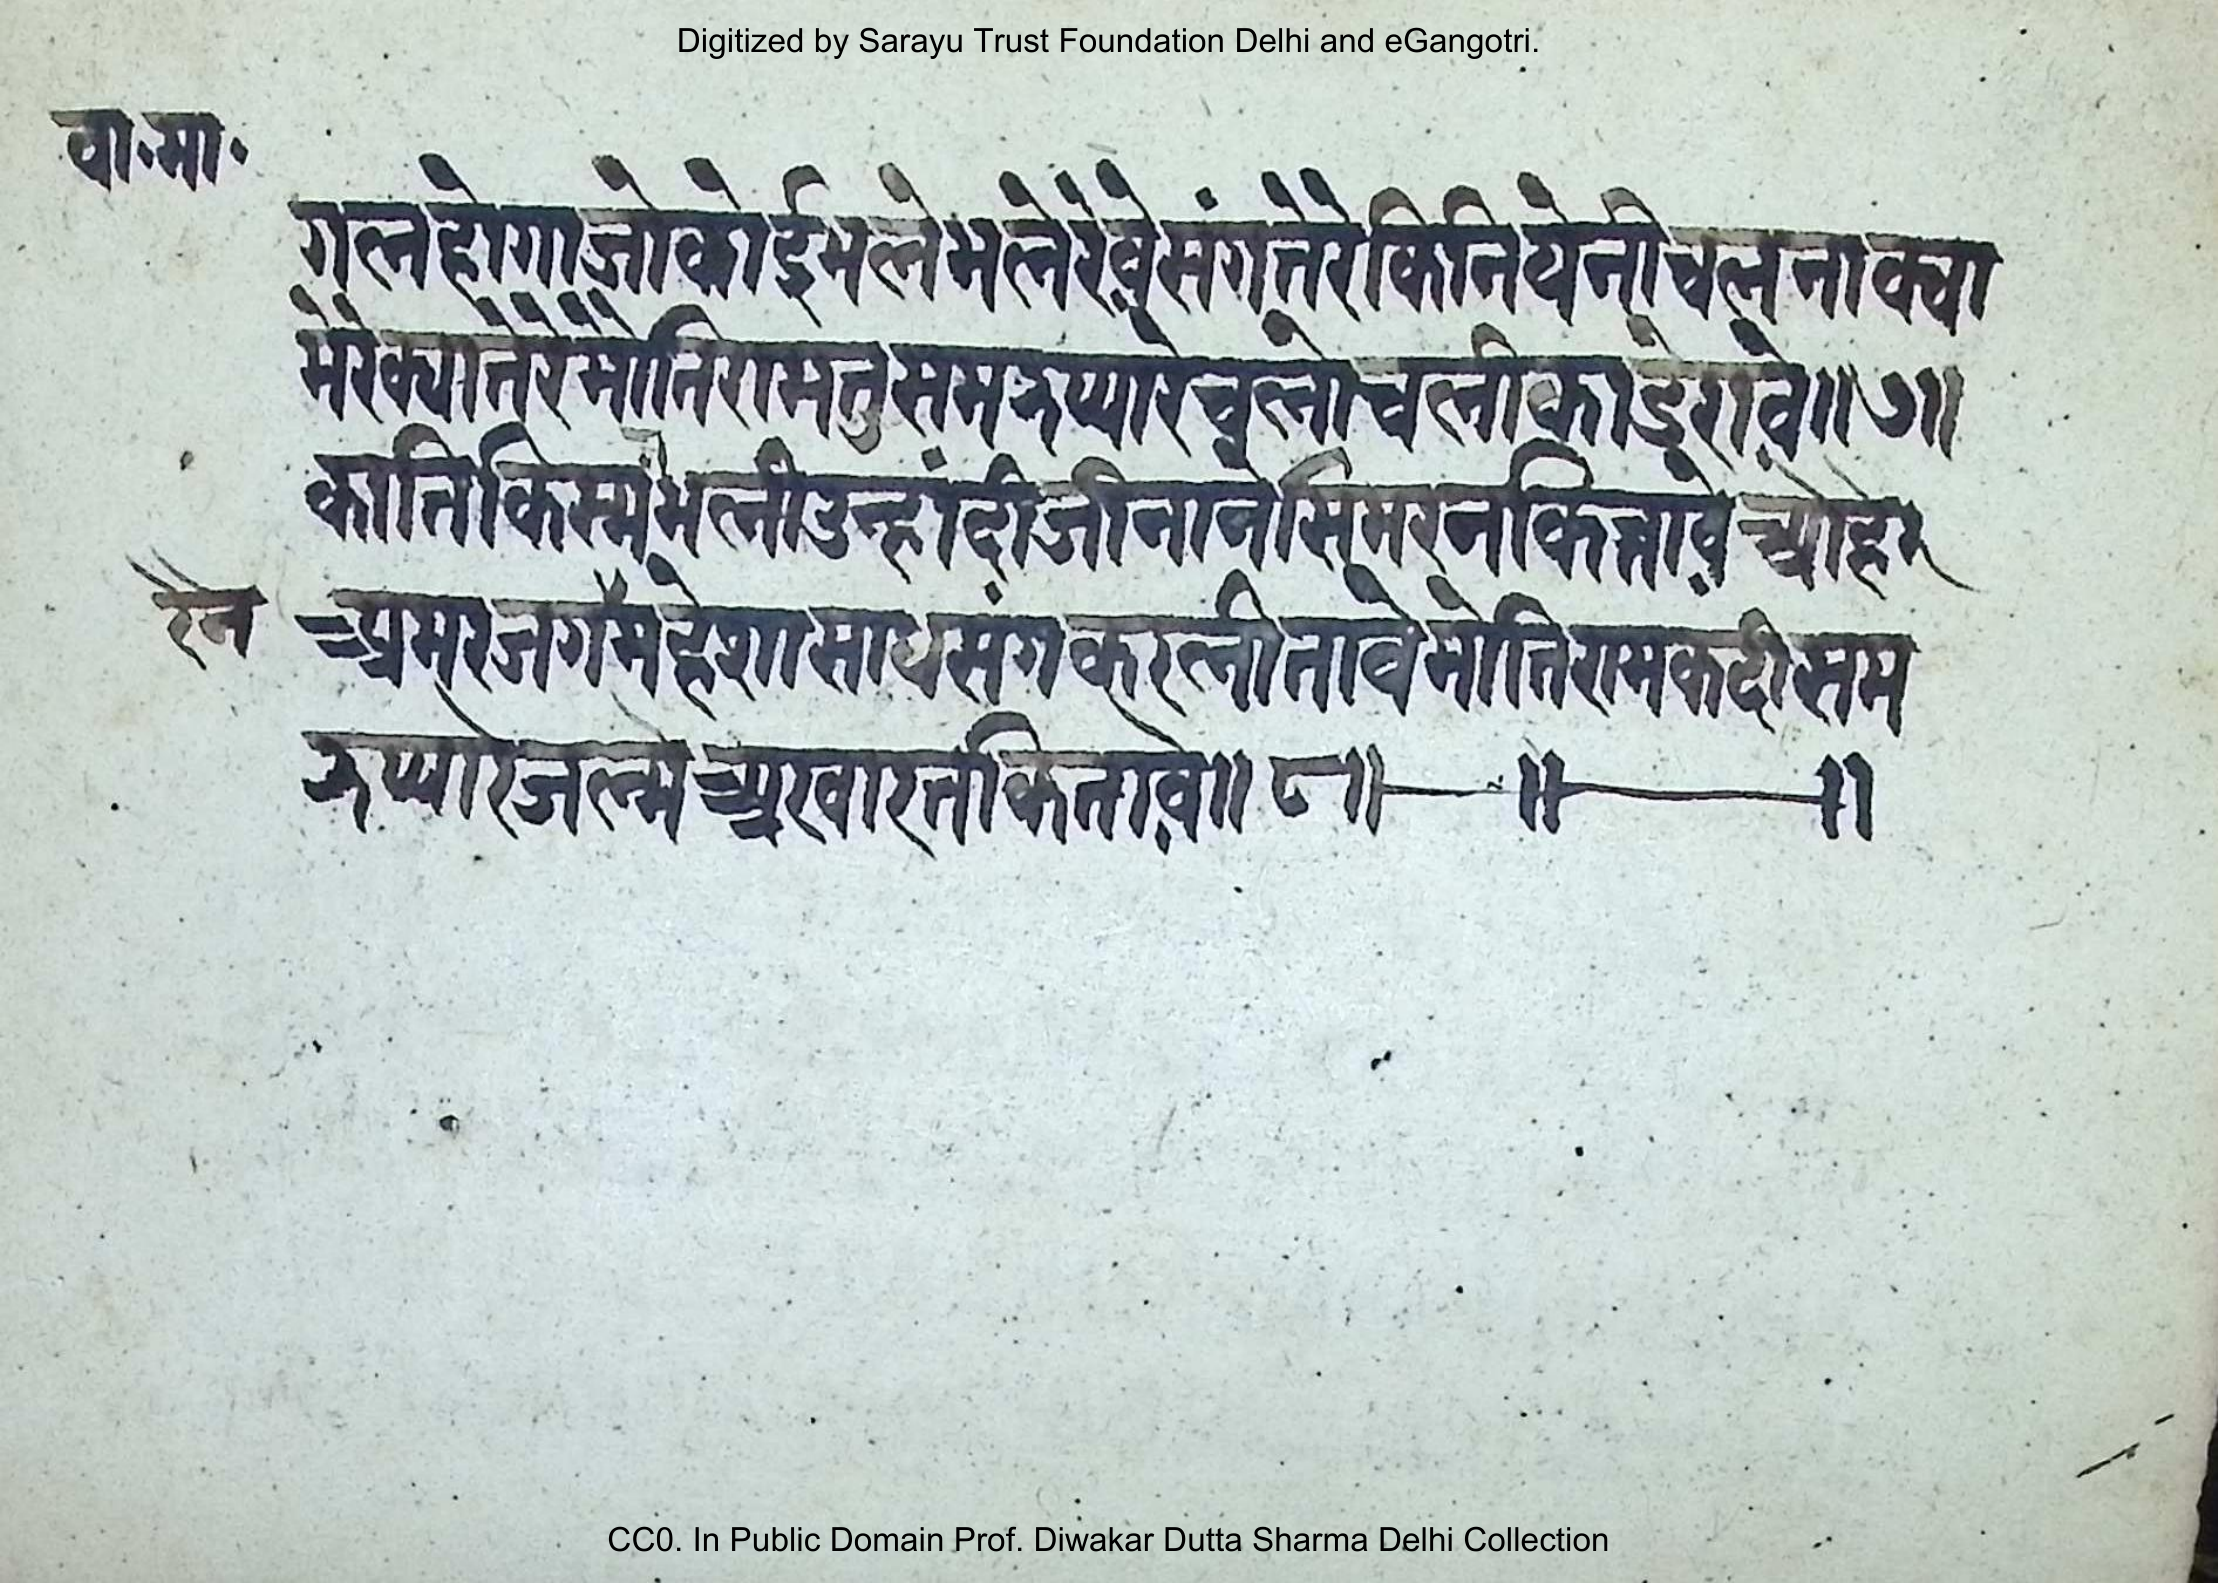 Digitized by Sarayu Trust Foundation Delhi and eGangotri.
वा॰मा॰
गलहोगाजोकोईभलेभलेरेवेसंगतेरेकिनियेनीचलनाक्या
मेरेक्यातेरेमोतिरामतुसमऊप्यारेचलोचलीकाडेरावे॥७॥
कातिकिस्मभलीउन्हांदीजीनानेसिमरनकित्तावे च्योहेर
रैन
च्यमरजगमेहेशासाधसंगकरलीतावेमोतिरामकदीसम
ऊप्यारेजल्म च्यखारतकितावे॥८॥—॥—॥
CC0. In Public Domain Prof. Diwakar Dutta Sharma Delhi Collection